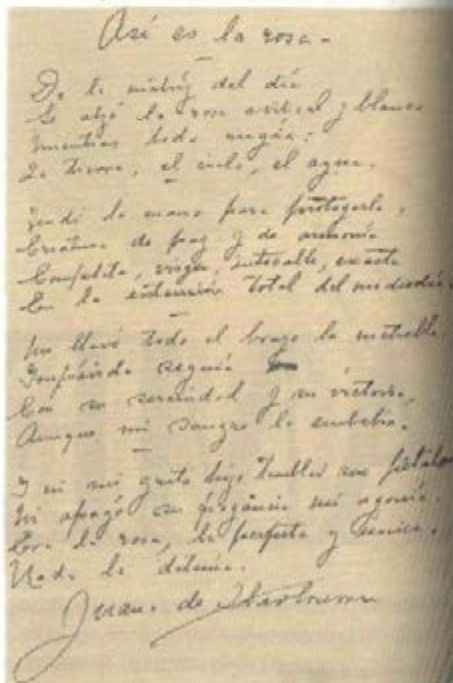 Así es la rosa -
De la matriz del día
Se alzó la rosa vertical y blanca
mientras todo rugía:
La tierra, el cielo, el agua.
Tendí la mano para protegerla,
Criatura de paz y de armonía
Completa, virgen, intocable, exacta
En la extensión total del mediodía.
Me llevó todo el brazo la metralla.
Impávida seguía
Con su serenidad y su victoria,
Aunque mi sangre la embebía.
Y ni mi grito hizo temblar sus pétalos
Ni apagó su fragancia mi agonía.
Era la rosa, la perfecta y única.
Nada la detenía.
Juana de Ibarbourou